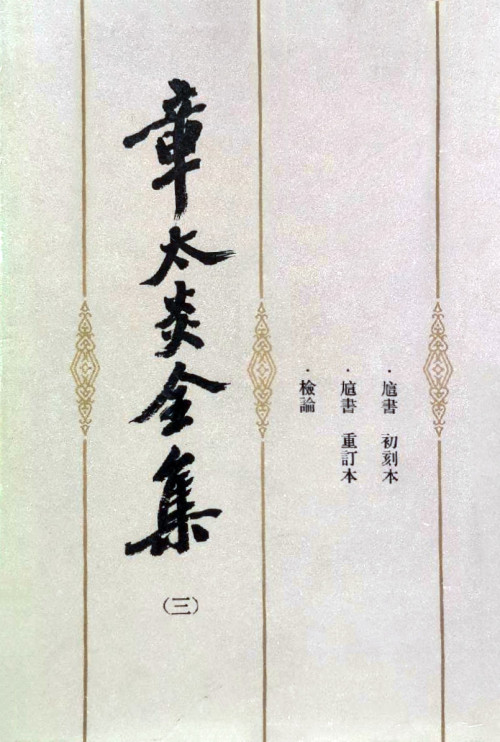 ·訄書 初刻本
·訄書 重訂本
·檢論
章太炎全集
(三)